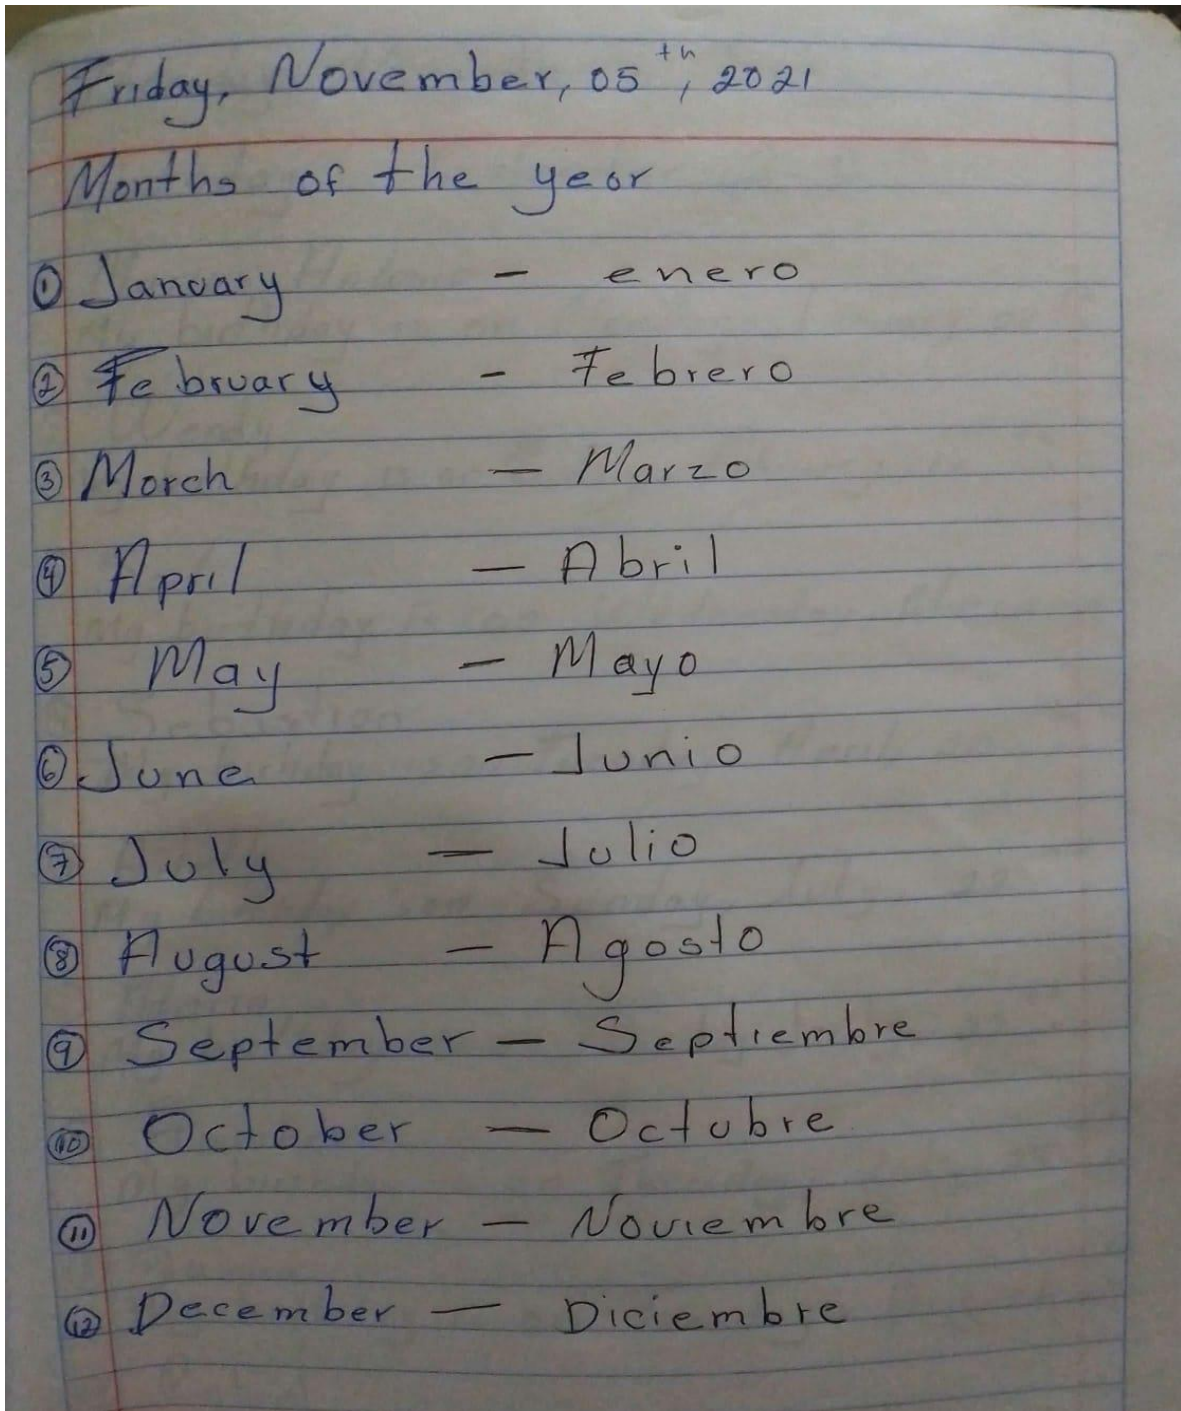 Friday, November, 05th, 2021
Months of the year
① January - enero
② February - Febrero
③ March - Marzo
④ April - Abril
⑤ May - Mayo
⑥ June - Junio
⑦ July - Julio
⑧ August - Agosto
⑨ September - Septiembre
⑩ October - Octubre
⑪ November - Noviembre
⑫ December - Diciembre